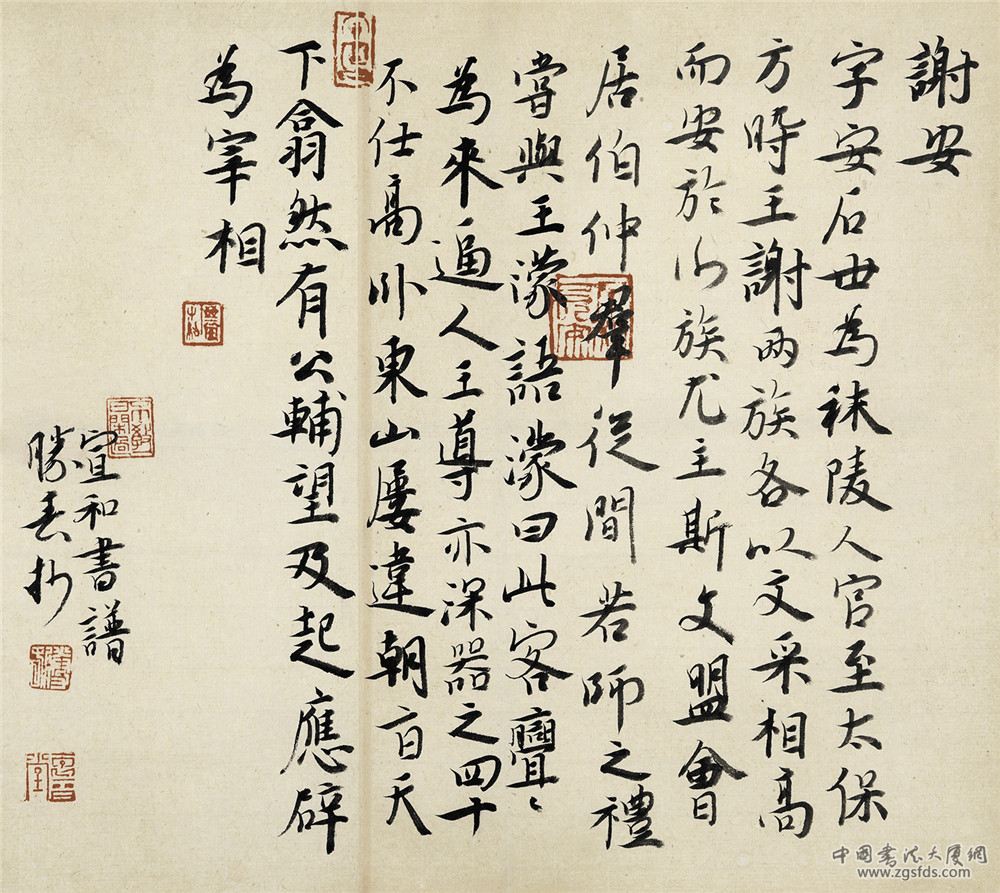 謝安
字安石世為秣陵人官至太保
方時王謝兩族各以文采相高
而安於族尤主斯文盟會
居伯仲羣從間若師之禮
嘗與王濛語濛曰此客亹〻
為來逼人王導亦深器之四十
不仕高卧東山屢違朝旨天
下翕然有公輔望及起應辟
為宰相
宣和書譜
勝抄
中国書法大厦網
www.zgsfds.com